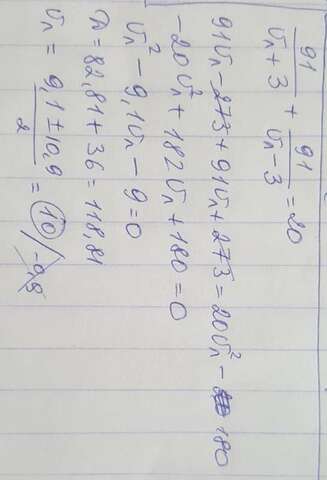 91/(υл + 3) + 91/(υл - 3) = 20
91υл - 273 + 91υл + 273 = 20υл² - 180
-20υл² + 182υл + 180 = 0
υл² - 9,1υл - 9 = 0
D = 82,81 + 36 = 118,81
υл = (9,1 ± 10,9)/2 = 10 / -0,9